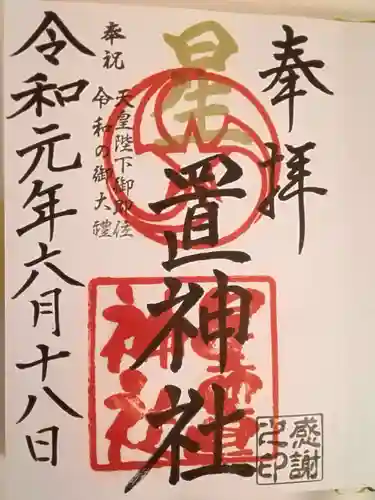 奉拝
星置神社
奉祝
天皇陛下御即位
令和の御大禮
令和元年六月十八日
星置神社
感謝
之印